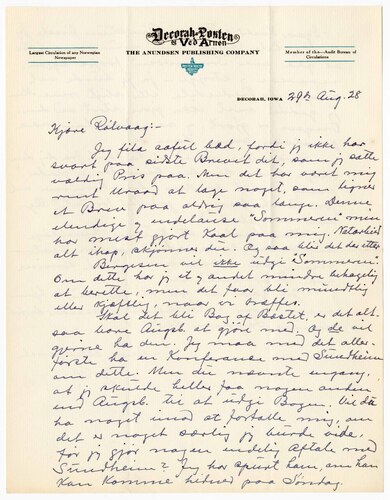 Decorah-Posten
& Ved Arnen
Largest Circulation of any Norwegian
Newspaper
THE ANUNDSEN PUBLISHING COMPANY
Member of the—Audit Bureau of
Circulations
DECORAH, IOWA 29th Aug. 28
Kjære Rölvaag:-
Jeg fila aafult bad, fordi jeg ikke har
svart paa sidste Brevet dit, som jeg satte
veldig Pris paa. Men det har været mig
rent Uraad at lage noget, som ligner
et Brev paa aldrig saa længe. Denne
elendige "Sommeren" min
har mest gjort Kaal paa mig. Natarbeid
alt ihop, skjønner du. Og saa bli det der etter
Bergesen vil ikke udgi "Sommeren".
Om dette har jeg et og andet mindre behagelig
at berette, men det faar bli mundtlig
eller kjæftlig, naar vi træffes.
Skal det bli Bog af Bæstet, er det alt-
saa bare Augsb. at gjøre med. Og de vil
gjerne ha den. Jeg maa med det aller-
første ha en Konferance med Sundheim
om dette. Men du nævnte engang,
at jeg skulde heller faa nogen anden
end Augsb. til at udgi Bogen. Vil du
ha noget imod at fortælle mig, om
det er noget særlig jeg burde vide,
før jeg gjør nogen endelig Aftale med
Sundheim? Jeg har spurt ham, om han
kan komme hidover paa Søndag.